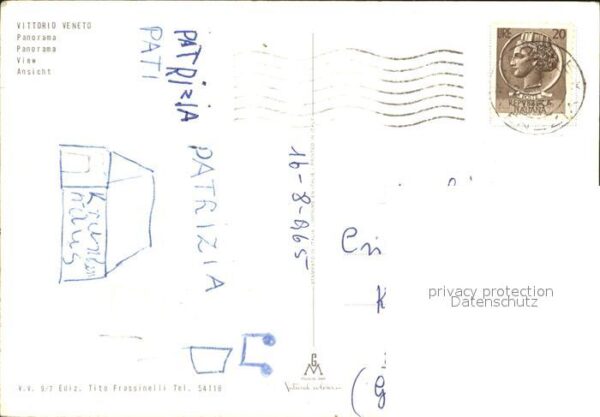 VITTORIO VENETO
Panorama
Panorama
View
Ansicht
PATRIZIA
PATI
PATRIZIA
16-8-965
LIRE 20
REPUBBLICA
ITALIANA
Cri
K
(G
privacy protection
Datenschutz
V.V. 9/7 Ediz. Tito Frassinelli Tel. 54118